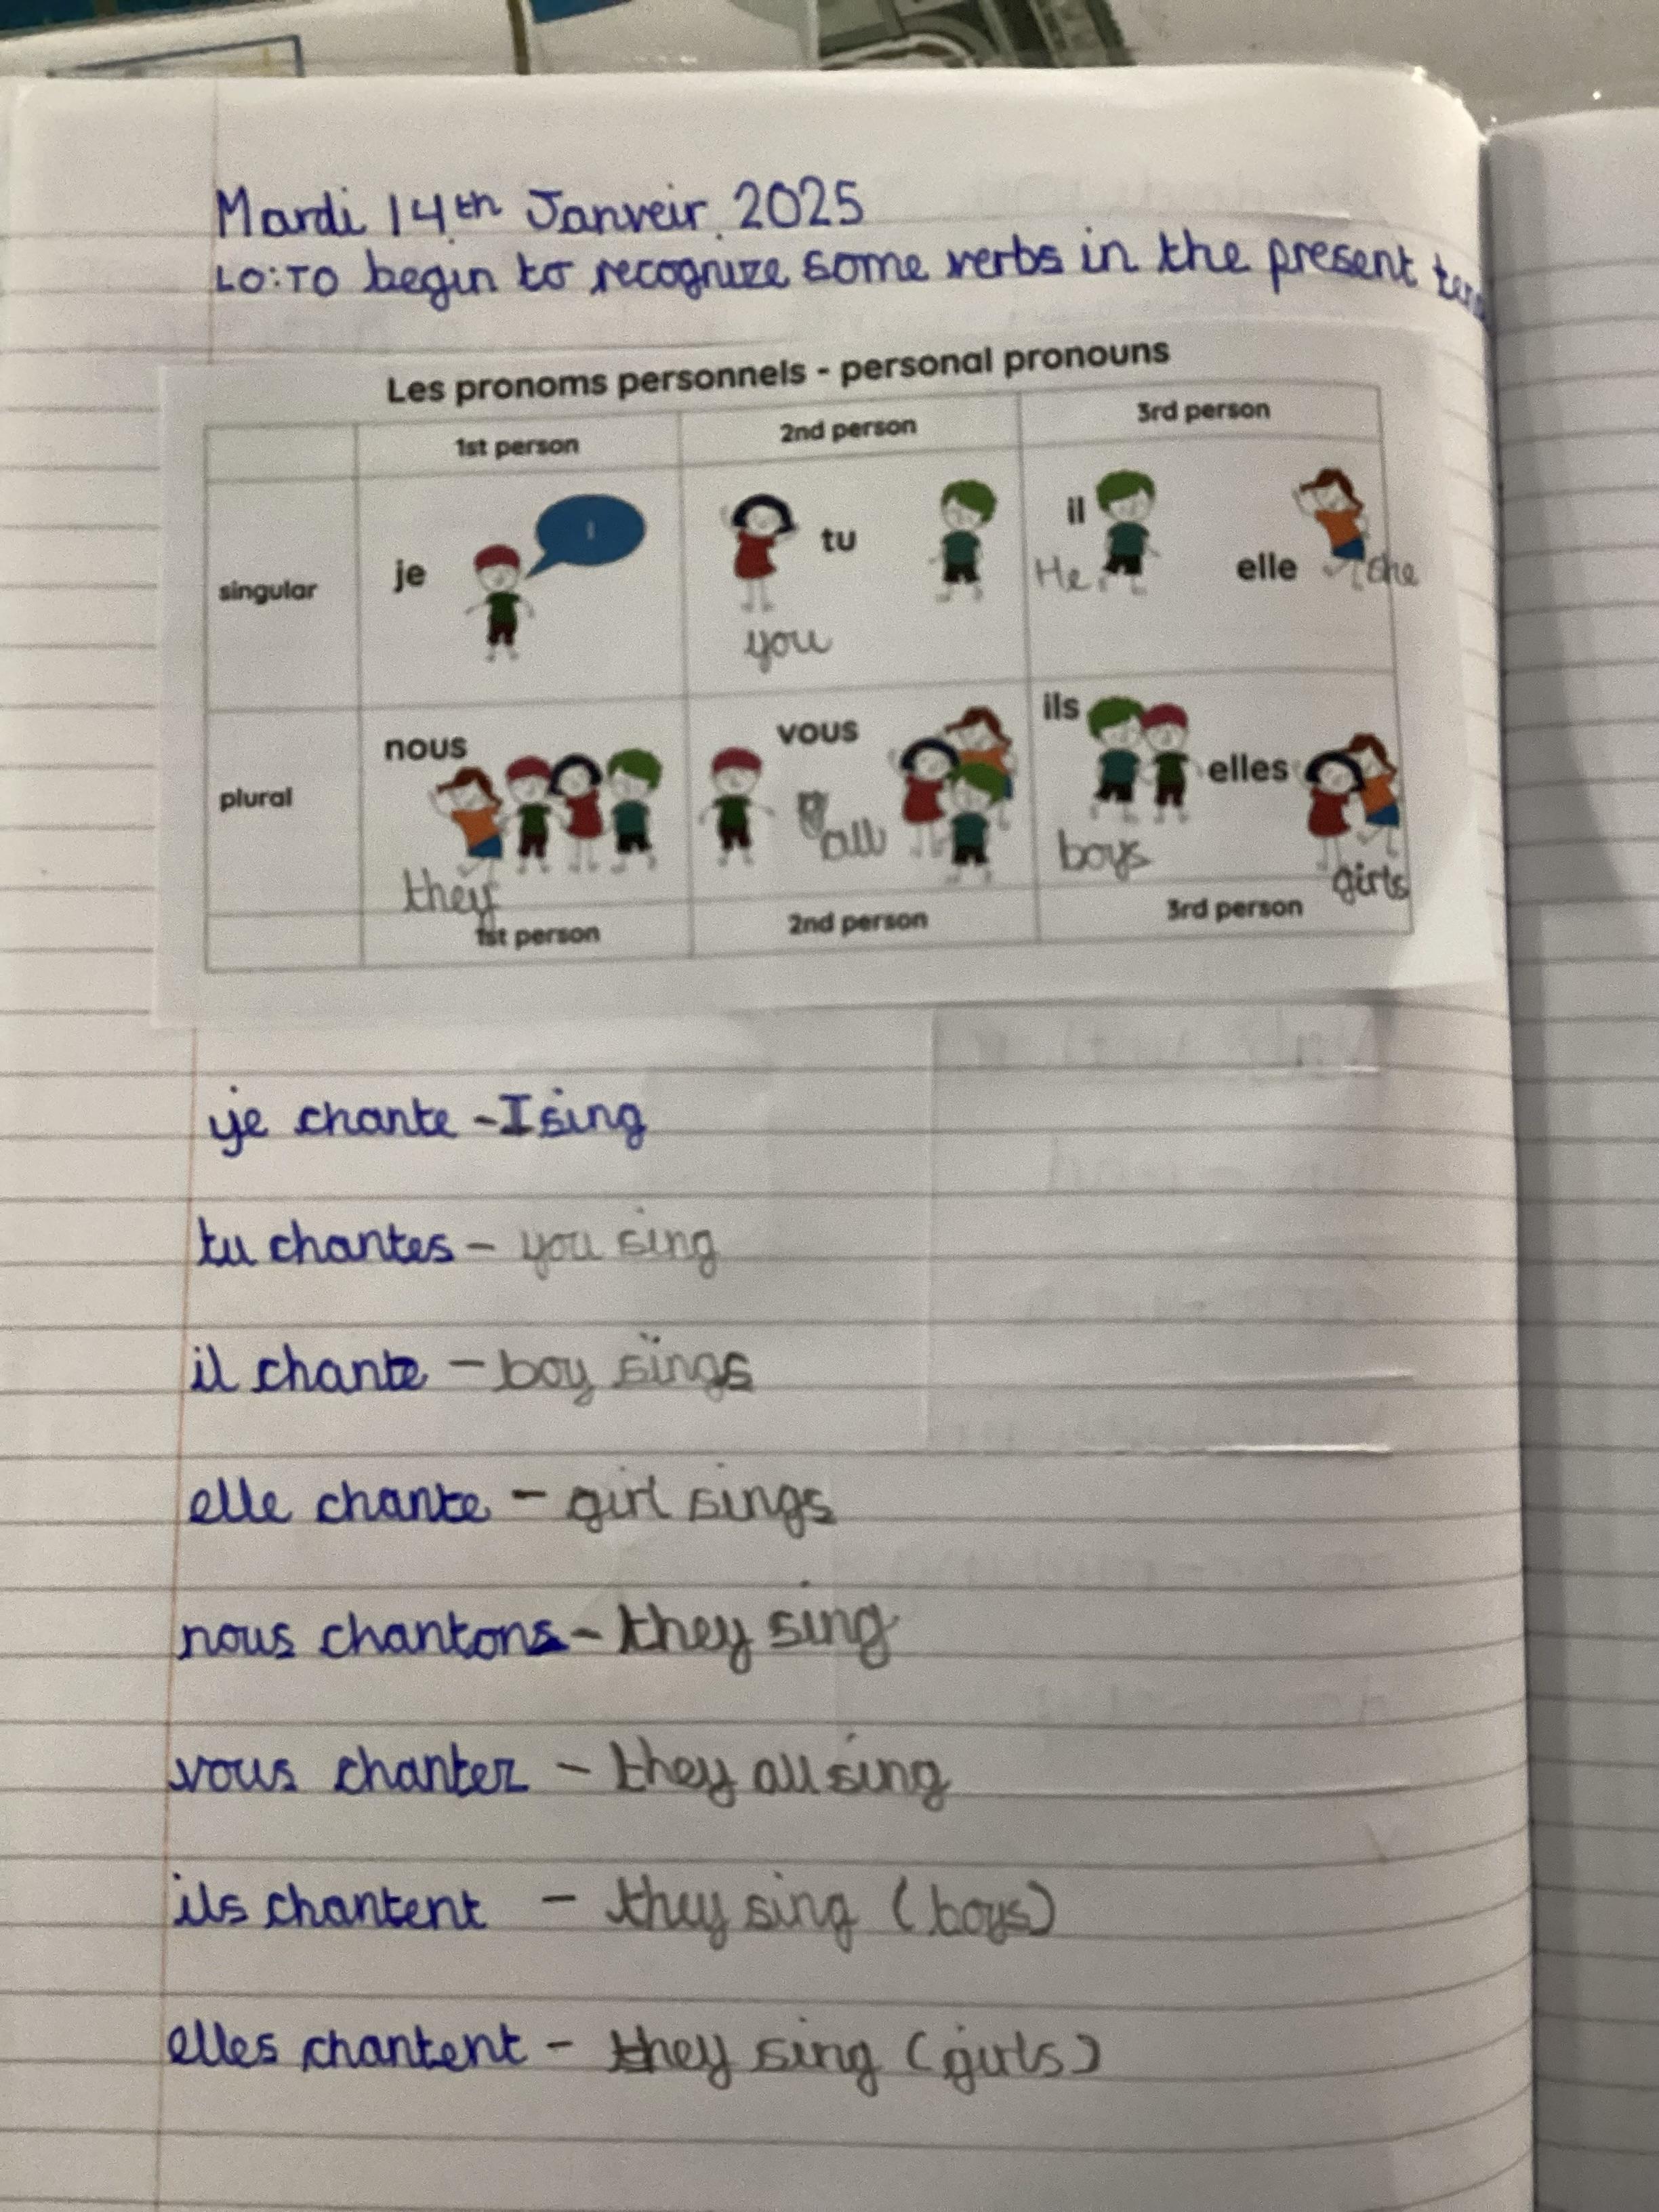 Mardi 14th Janveir 2025
LO: TO begin to recognize some verbs in the present
Les pronoms personnels - personal pronouns
1st person 2nd person 3rd person
singular je I tu il elle
you He she
plural nous vous ils elles
they all boys girls
1st person 2nd person 3rd person
je chante - I sing
tu chantes - you sing
il chante - boy sings
elle chante - girl sings
nous chantons - they sing
vous chantez - they all sing
ils chantent - they sing (boys)
elles chantent - they sing (girls)